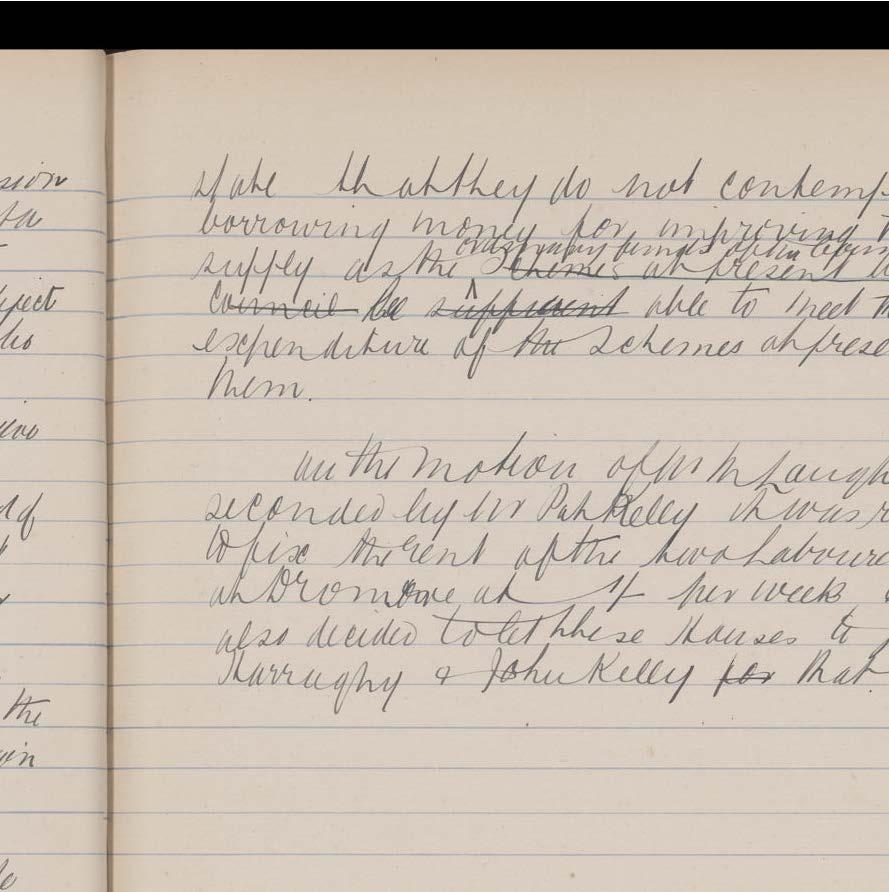 sion
ta
ject
ho
of
the
in
state that they do not contemp
borrowing money for improving
supply as the schemes at present
council be sufficient able to meet
expenditure of the schemes at prese
them.
on the motion of Mr McLaugh
seconded by Mr Pat Kelly it was r
to fix the rent of the two Laboure
at Dromore at 1/- per week
also decided to let these Houses to
Harraghy & John Kelly for that